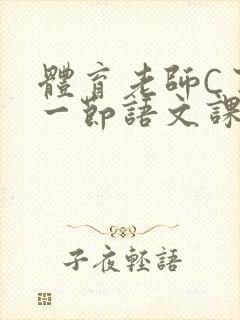 體育老師C
一節語文課
子夜輕語